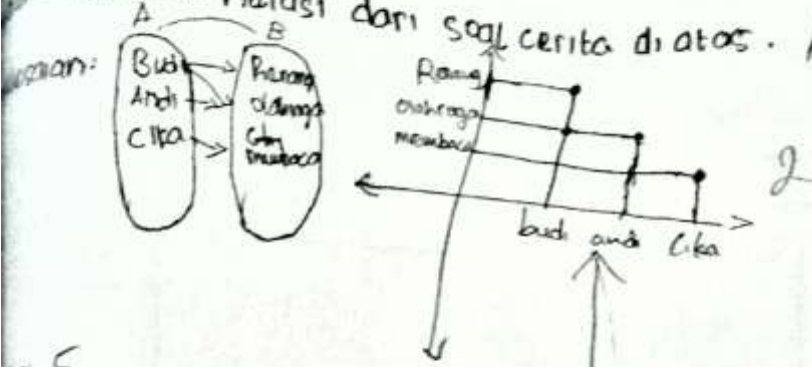 dari soal cerita di atas.
A B
Budi Renang
Andi olahraga
Cika membaca
Renang
olahraga
membaca
budi andi Cika
2